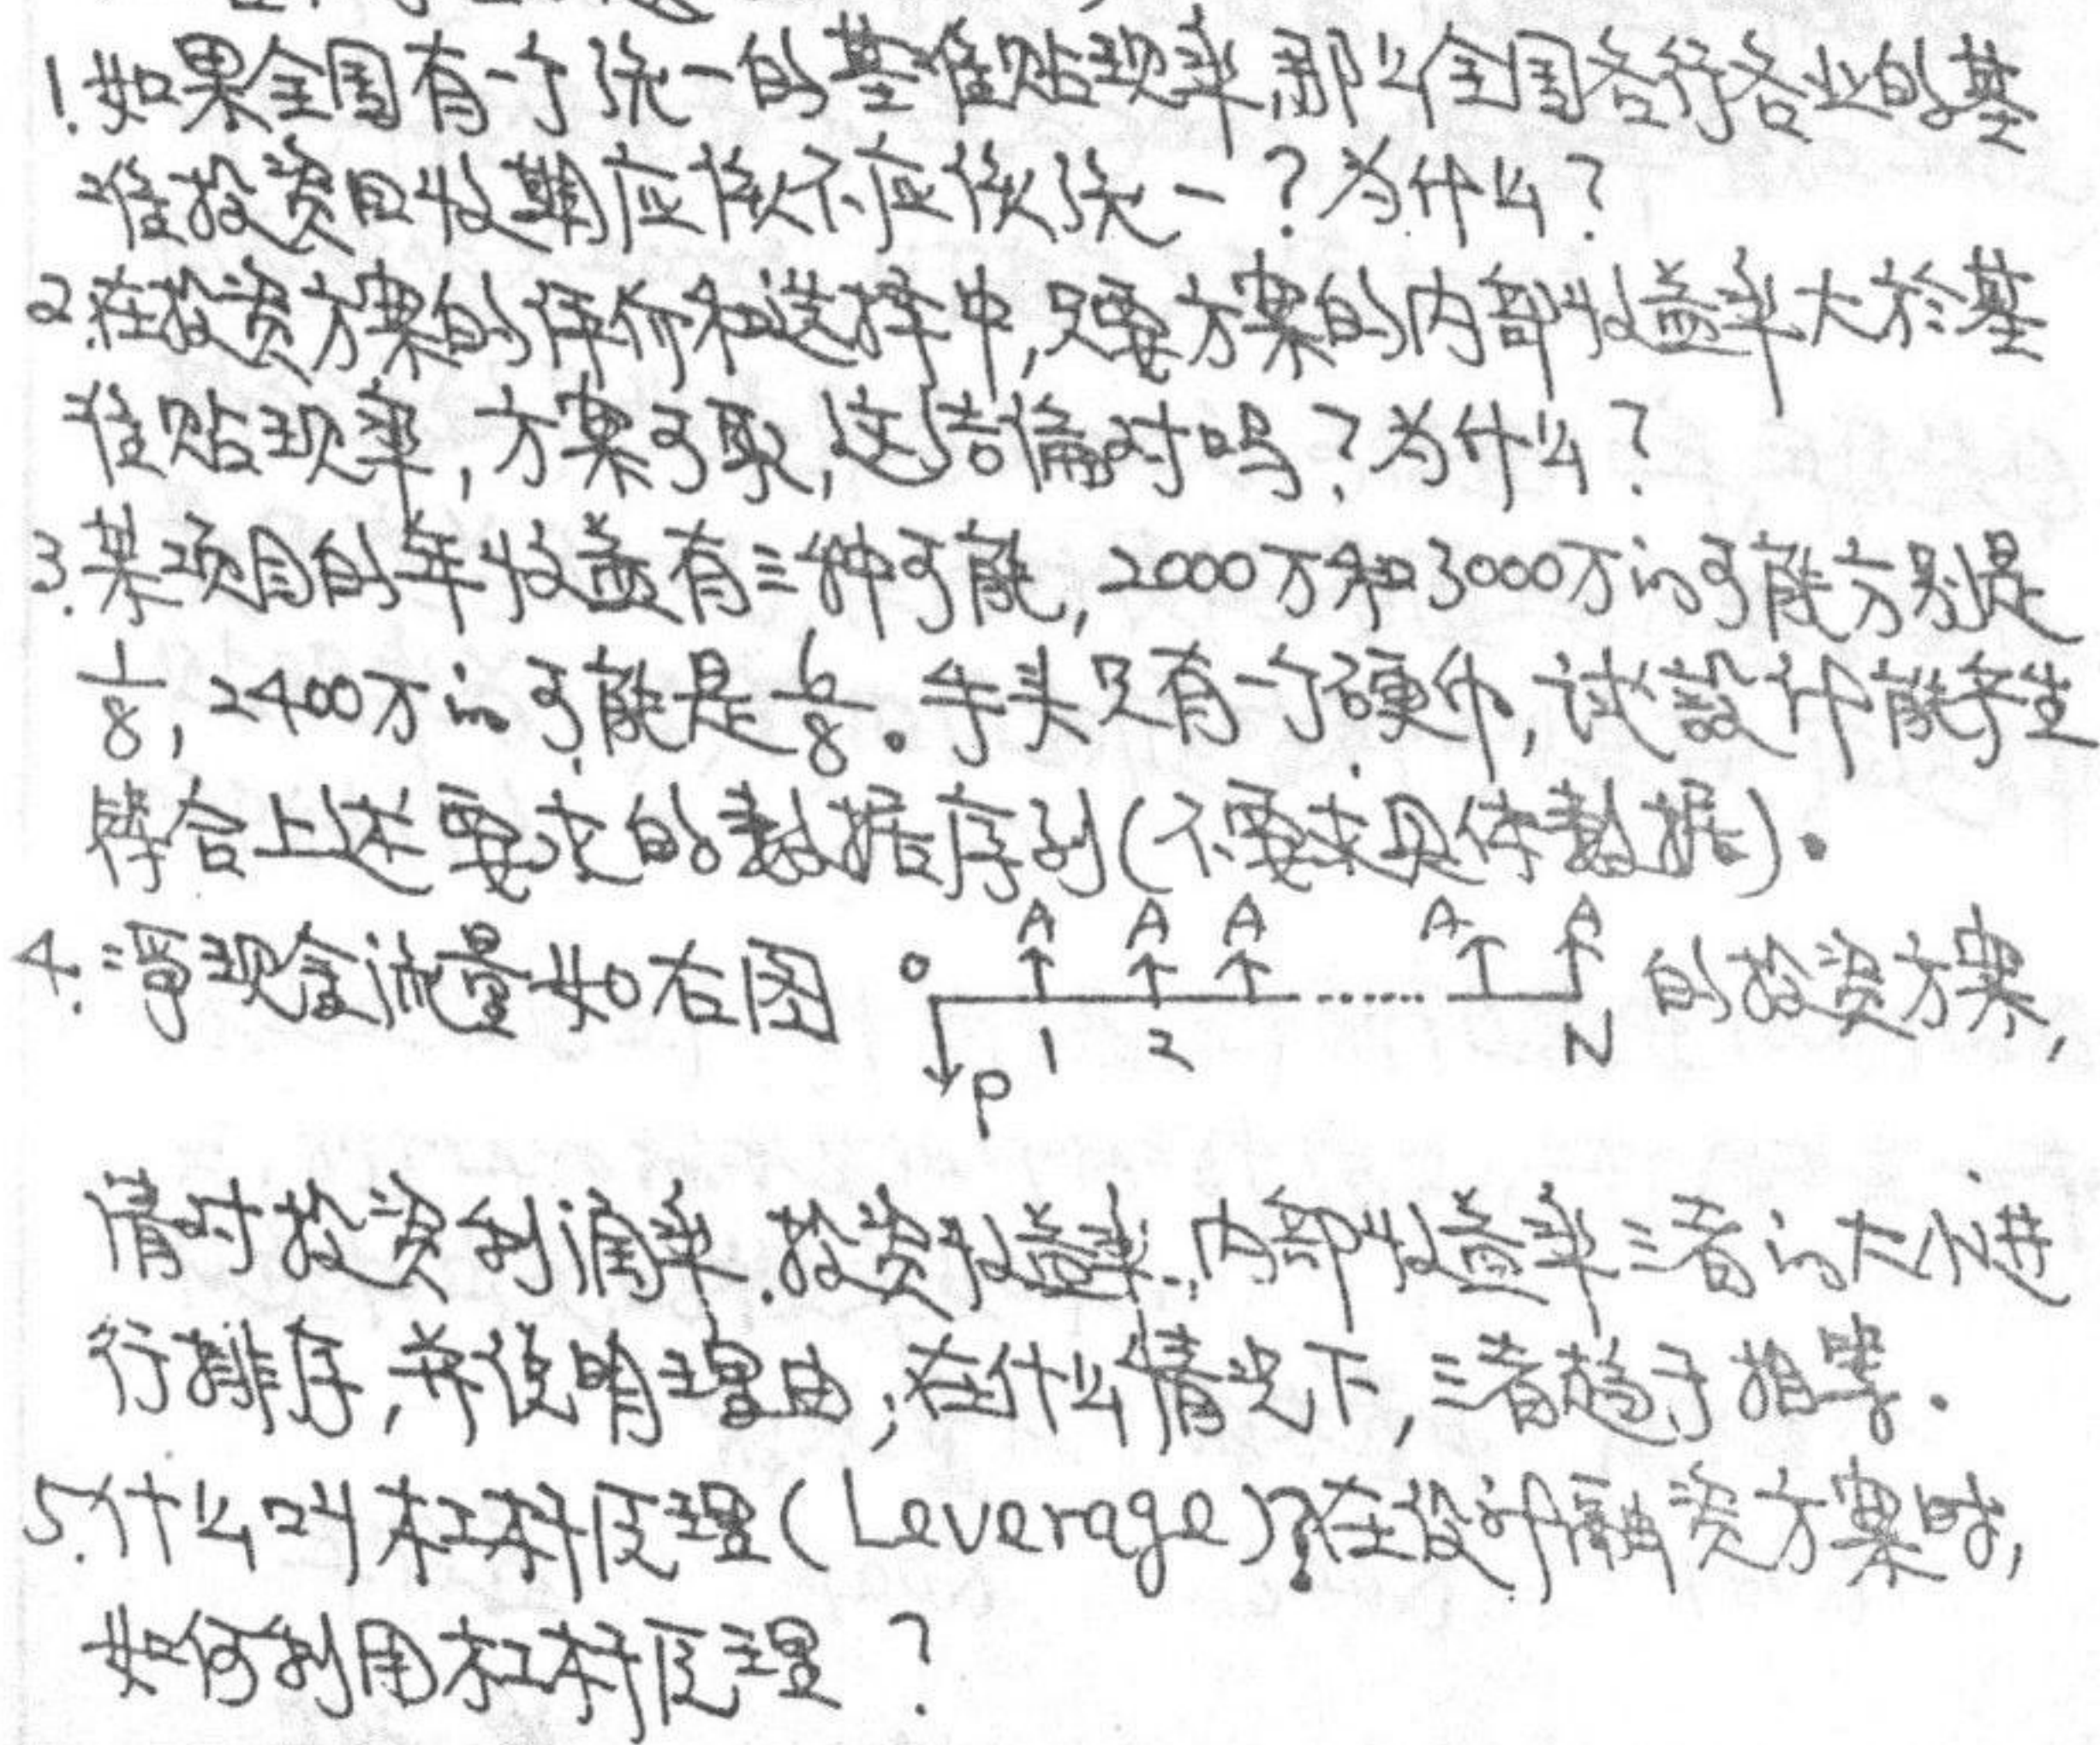 1.如果全国有一个统一的基准贴现率,那么全国各行各业的基
准投资回收期应该不应该统一?为什么?
2.在投资方案的评价和选择中,只要方案的内部收益率大於基
准贴现率,方案可取,这结论对吗?为什么?
3.某项目的年收益有三种可能,2000万和3000万的可能分别是
1/8,2400万的可能是6/8。手头只有一个硬币,试設计能产生
符合上述要求的数据序列(不要求具体数据)。
4.淨现金流量如右图 0 A A A A A 的投资方案,
P 1 2 ...... N
请对投资利润率.投资收益率.,内部收益率三者的大小进
行排序,并说明理由;在什么情况下,三者趋于相等.
5.什么叫杠杆原理(Leverage)?在设计融资方案时,
如何利用杠杆原理?